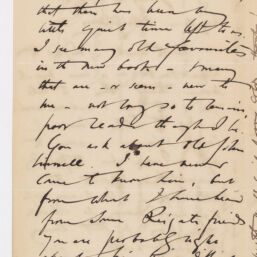 that there has been very
little quiet time left to us.
I see many old favourites
in the new books - & many
that are - or seem - new to
me - not long so to remain,
poor reader though I be.
You ask about old John
I have never
came to know him, but
from what I have heard
from some Reigate friends
you are probably right